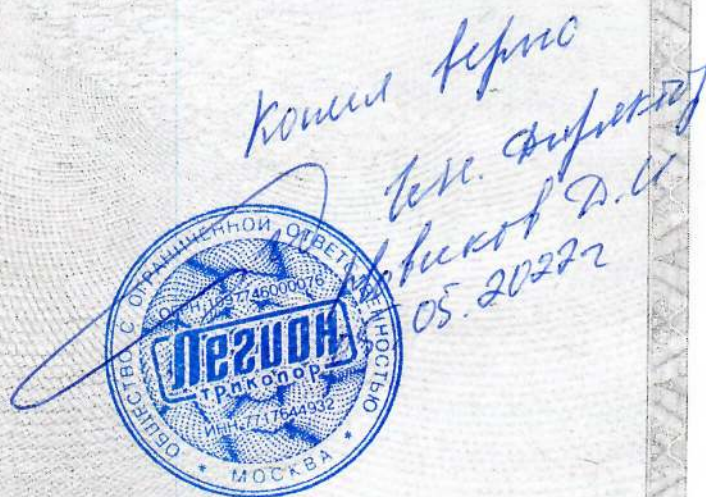 Копия верно
Ген. Директор
Новиков Д.И
05.2022г
ОБЩЕСТВО С ОГРАНИЧЕННОЙ ОТВЕТСТВЕННОСТЬЮ
ОГРН 1097746000076
Легион
трикопор
ИНН 7717644932
* МОСКВА *